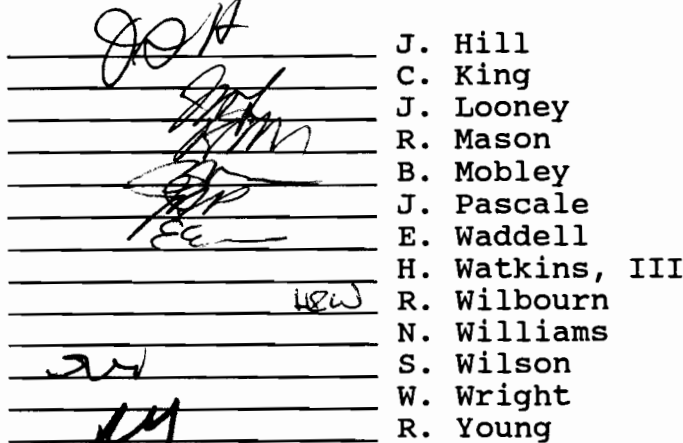 J. Hill
C. King
J. Looney
R. Mason
B. Mobley
J. Pascale
E. Waddell
H. Watkins, III
R. Wilbourn
N. Williams
S. Wilson
W. Wright
R. Young